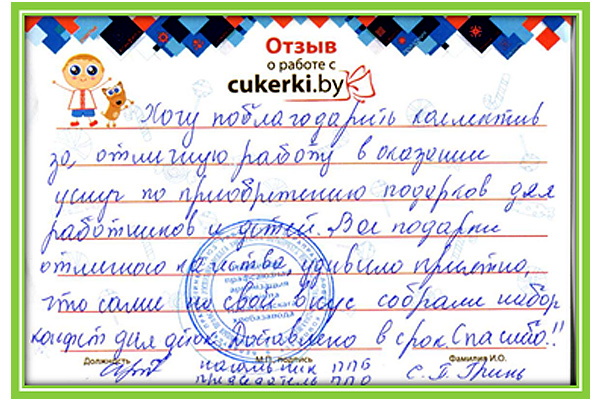 Отзыв
о работе с
cukerki.by
Хочу поблагодарить коллектив
за, отличную работу в оказании
услуг по приобритению подарков для
работников и детей. Все подарки
отличного качества, удивило приятно,
что сами по свой вкус собрали набор
конфет для деток. Доставлено в срок. Спасибо!!
Должность М.П. подпись Фамилия И.О.
начальник ППБ С. П. Гринь
председатель ППО